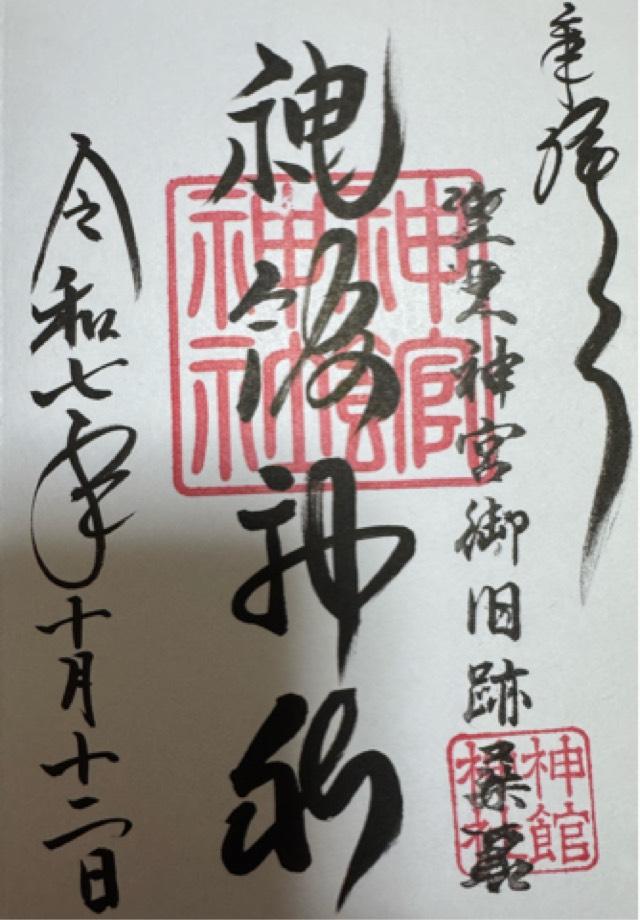 奉拝
神宮御旧跡桑名
神館神社
令和七年十月十二日
神館神社
神館神社